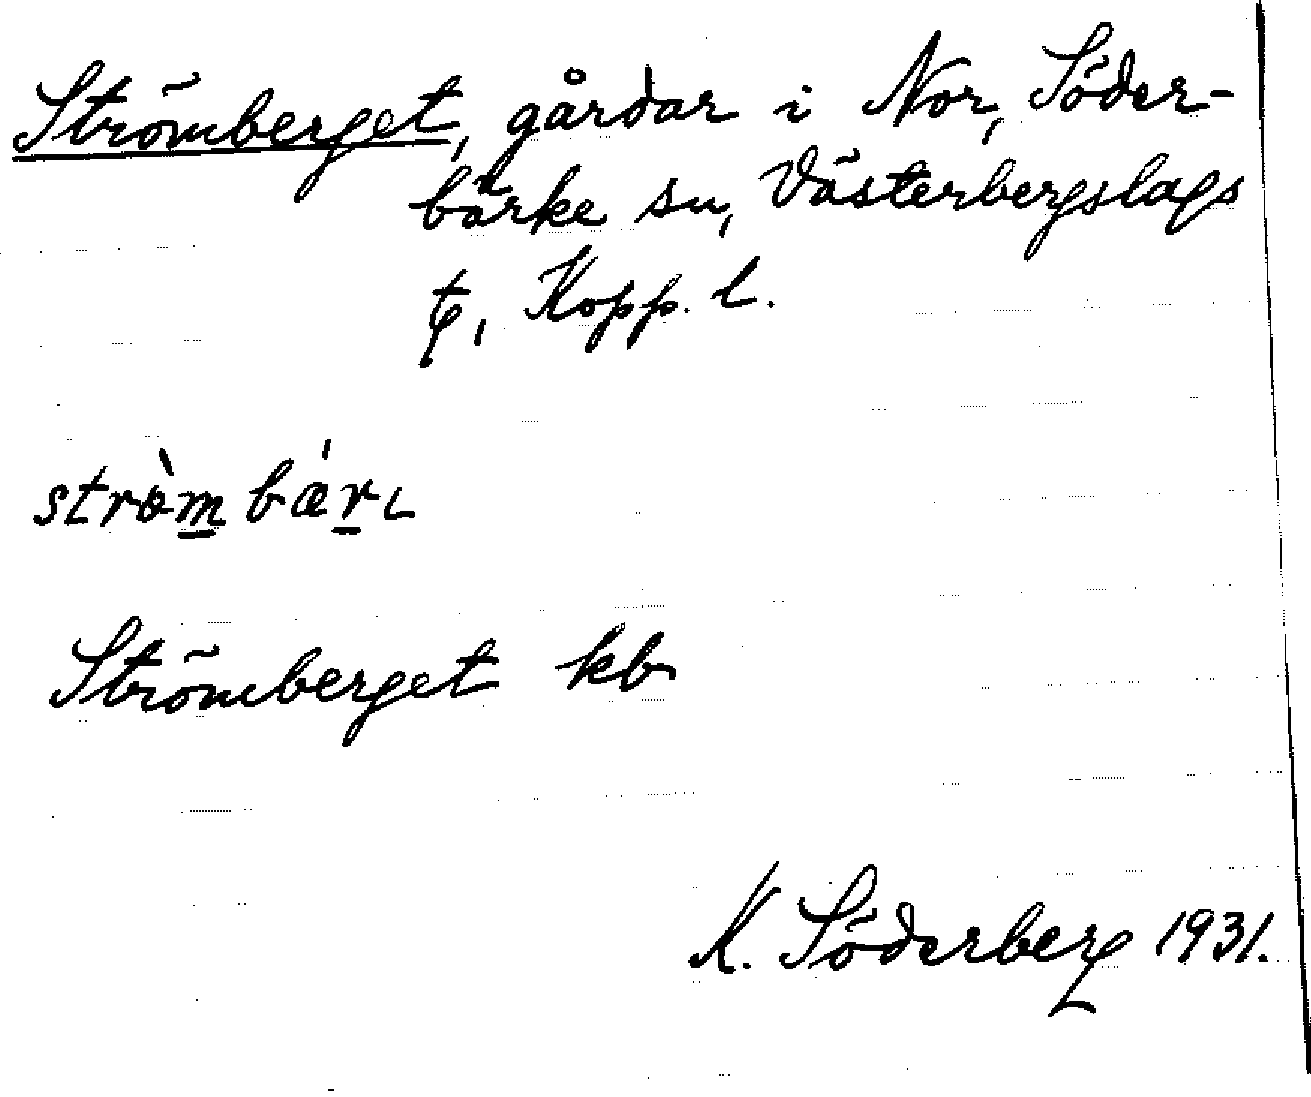 Strömberget, gårdar i Nor, Söder-
bärke sn, Västerbergslags
t, Kopp. l.
strò̀m bǽrɩ
Strömberget kb
K. Söderberg 1931.